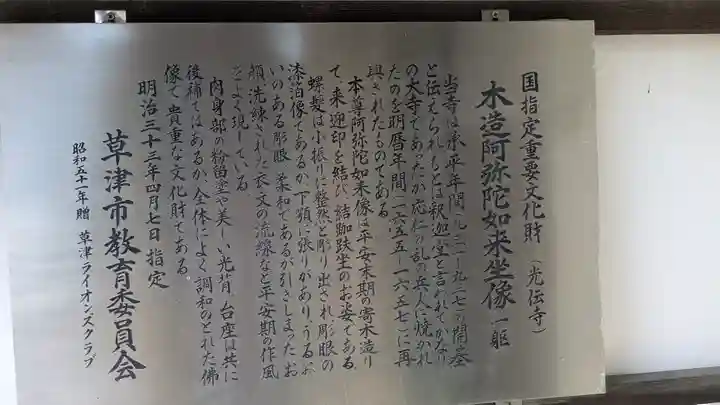 国指定重要文化財 (光伝寺)
木造阿弥陀如来坐像 一躯
当寺は承平年間(九三一-九三七)の開基
と伝えられもとは釈迦堂と言われてかなり
の大寺であったが応仁の乱の兵火に焼かれ
たのを明暦年間(一六五五-一六五七)に再
興されたものである
本尊阿弥陀如来像は平安末期の寄木造り
で、来迎印を結び、結跏趺坐のお姿である
螺髪は小振りに整然と彫り出され、彫眼の
漆箔像であるが、下顎に張りがあり、うるお
いのある彫眼、柔和であるが引きしまったお
顔、洗練された衣文の流線など平安期の作風
をよく現している。
肉身部の粉留塗や美しい光背、台座は共に
後補ではあるが、全体によく調和のとれた佛
像で貴重な文化財である。
明治三十三年四月七日指定
草津市教育委員会
昭和五十一年贈 草津ライオンズクラブ